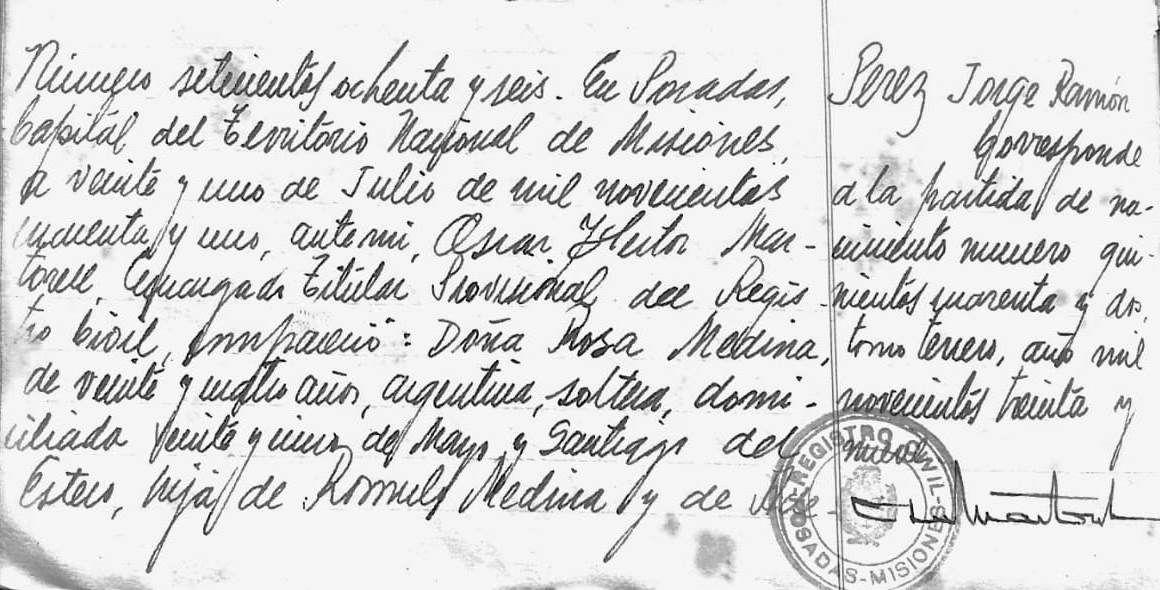 Número setecientos ochenta y seis. En Posadas,
Capital del Territorio Nacional de Misiones,
a veinte y uno de Julio de mil novecientos
cincuenta y uno, ante mi, Oscar Hector Mar-
torell, Encargado Titular Provisional del Regis-
tro Civil, compareció: Doña Rosa Medina,
de veinte y cuatro años, argentina, soltera, domi-
ciliada veinte y cinco de Mayo y Santiago del
Estero, hija de Romulo Medina y de
Perez Jorge Ramón
Corresponde
a la partida de na-
cimiento numero qui-
nientos cuarenta y dos,
tomo tercero, año mil
novecientos treinta y
nueve
REGISTRO CIVIL
POSADAS-MISIONES